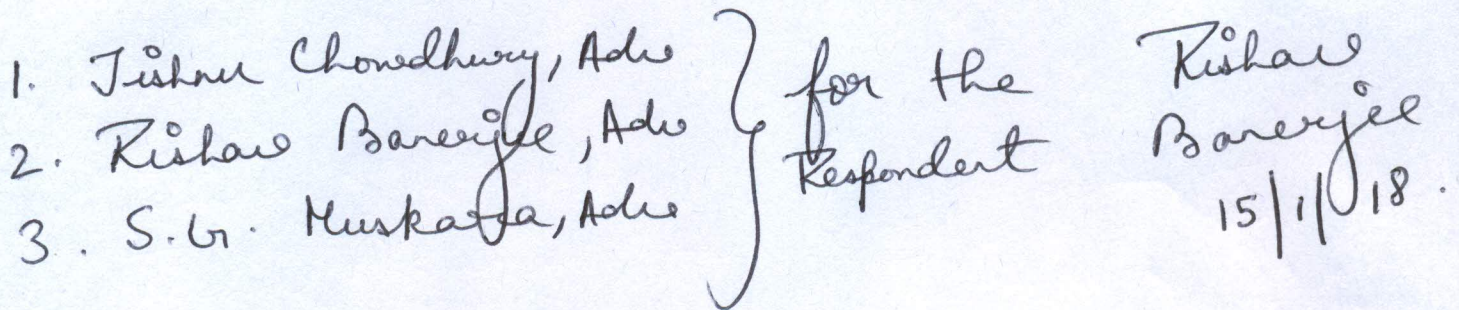 1. Jishnu Chowdhury, Adv
2. Rishav Banerjee, Adv
3. S. G. Muskara, Adv
for the
Respondent
Rishav
Banerjee
15/1/18.